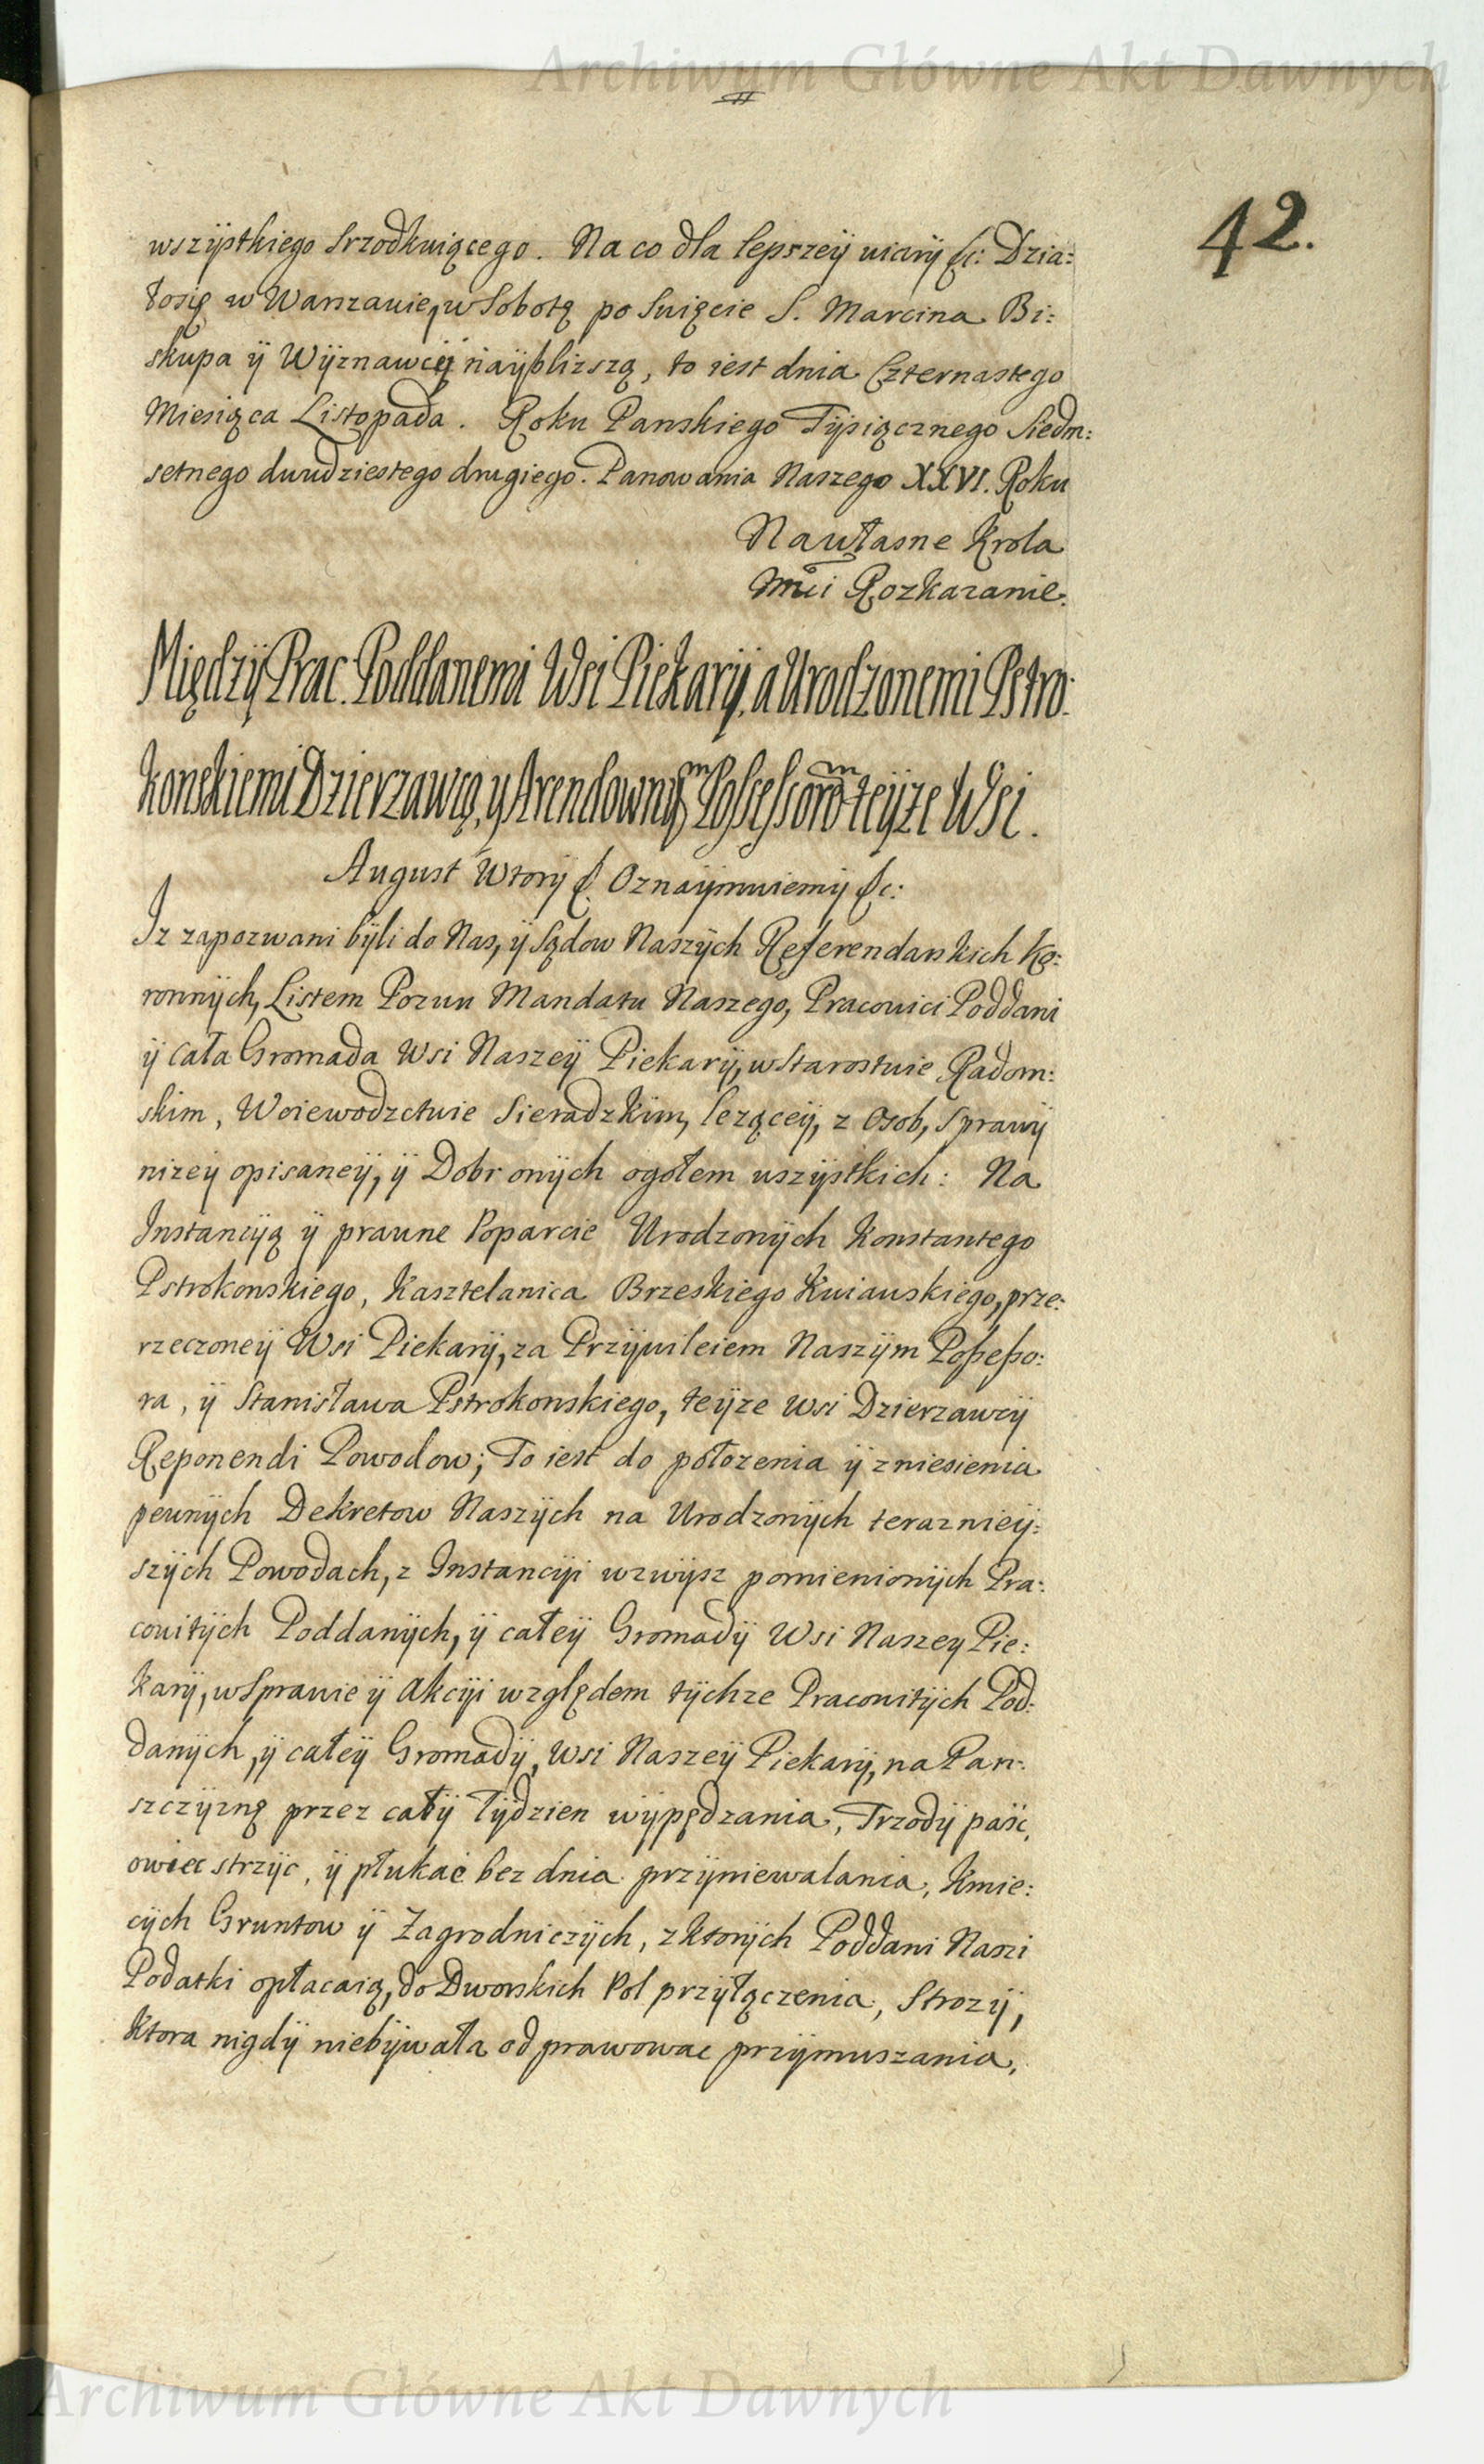 Archiwum Główne Akt Dawnych
42.
wszÿstkiego srzodkuiącego. Na co dla lepszeÿ wiarÿ &c: Dzia:
łosię w Warszawie, w Sobotę po Swięcie S. Marcina Bi:
skupa ÿ Wÿznawcÿ naÿblizszą, to iest dnia Czternastego
Miesiąca Listopada. Roku Panskiego Tÿsiącznego Siedm:
setnego dwudziestego drugiego. Panowania Naszego XXVI. Roku
Na własne Krola
Mci Rozkazanie.
Międzÿ Prac: Poddanemi Wsi Piekarÿ, a Urodzonemi Pstro:
konskiemi Dzierzawcą, y Arendownÿm Possessorem teÿze Wsi.
August Wtorÿ &. Oznaÿmuiemÿ &c:
Iz zapozwani bÿli do Nas, ÿ Sądow Naszÿch Referendarskich Ko:
ronnÿch, Listem Pozwu Mandatu Naszego, Pracowici Poddani
ÿ cała Gromada Wsi Naszeÿ Piekarÿ, w Starostwie Radom:
skim, Woiewodzctwie Sieradzkim, leząceÿ, z Osob, Sprawÿ
nizeÿ opisaneÿ, ÿ Dobr onÿch ogołem wszÿstkich: Na
Instancÿą ÿ prawne Poparcie Urodzonÿch Konstantego
Pstrokonskiego, Kasztelanica Brzeskiego Kuiawskiego, prze:
rzeczoneÿ Wsi Piekarÿ, za Przÿwileiem Naszÿm Possesso:
ra, ÿ Stanisława Pstrokonskiego, teÿze Wsi Dzierzawcÿ
Reponendi Powodow; To iest do połozenia ÿ zniesienia
pewnÿch Dekretow Naszÿch na Urodzonÿch teraznieÿ:
szÿch Powodach, z Instancÿi wzwÿsz pomienionÿch Pra:
cowitÿch Poddanÿch, ÿ całeÿ Gromadÿ Wsi Naszey Pie:
karÿ, w Sprawie ÿ Akcÿi względem tÿchze Pracowitÿch Pod:
danÿch, ÿ całeÿ Gromadÿ, Wsi Naszeÿ Piekarÿ, na Pan:
szczÿznę przez całÿ Tÿdzien wÿpędzania, Trzodÿ paść,
owiec strzÿc, ÿ płukać bez dnia przÿniewalania, Kmie:
cÿch Gruntow ÿ Zagrodniczÿch, z ktorÿch Poddani Nasi
Podatki opłacaią, do Dworskich Pol przÿłączenia, Strozÿ,
ktora nigdÿ niebÿwała odprawowac przÿmuszania,
Archiwum Główne Akt Dawnych